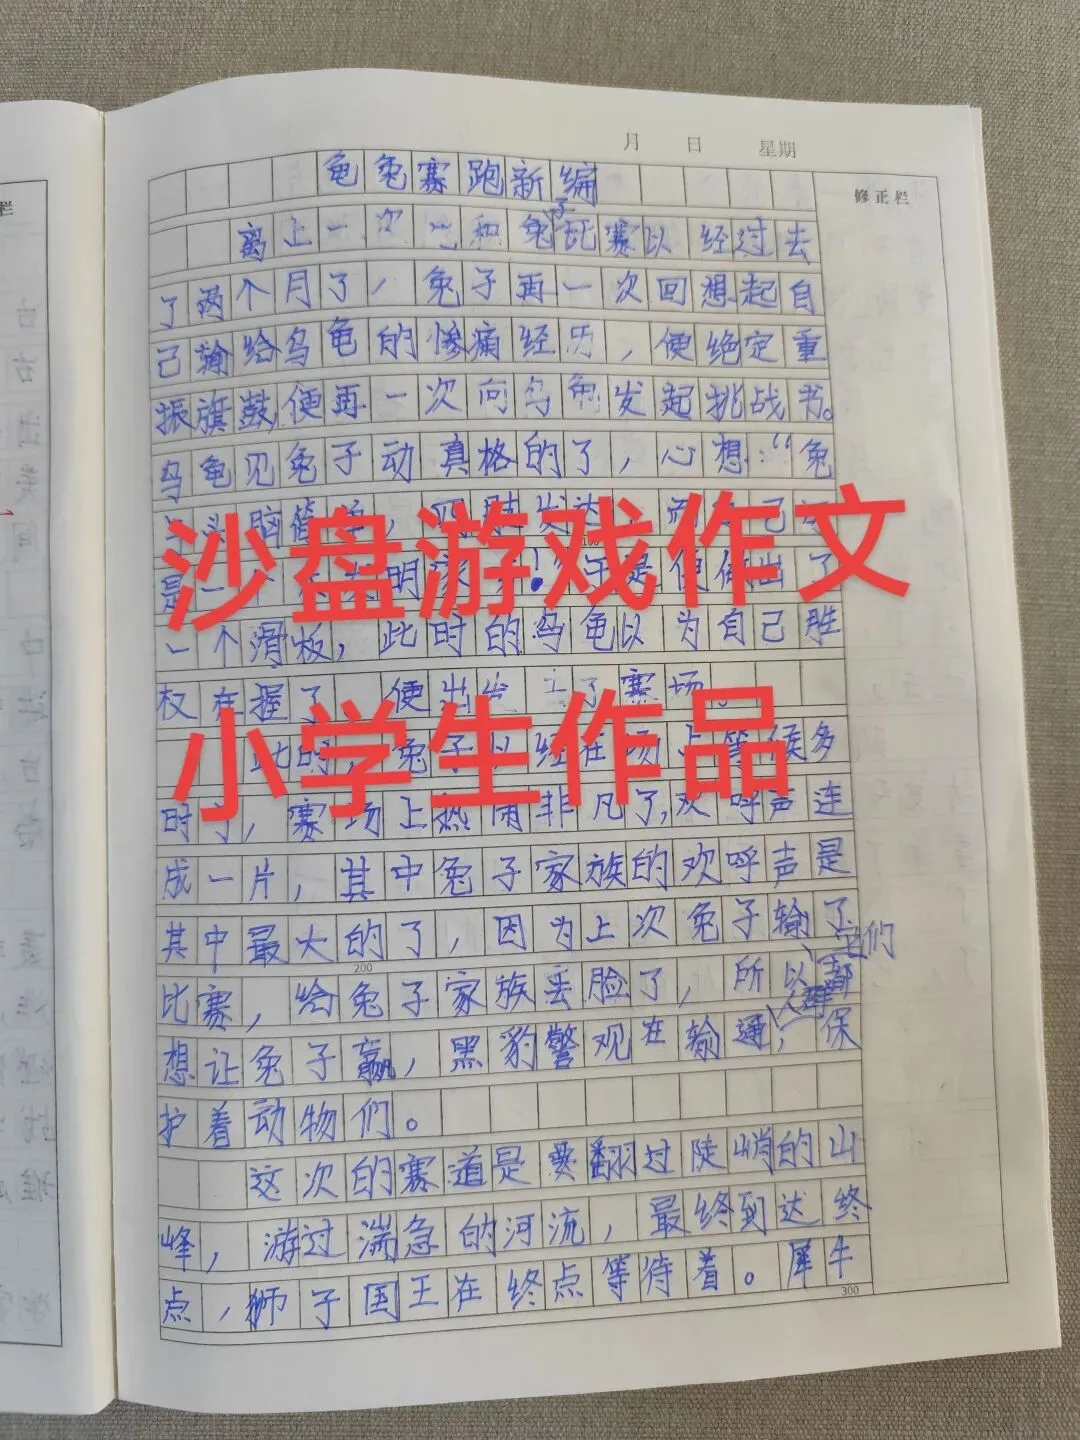 月 日 星期
修正栏
龟兔赛跑新编
离上一次和兔子比赛以经过去
了两个月了，兔子再一次回想起自
己输给乌龟的惨痛经历，便绝定重
振旗鼓便再一次向乌龟发起挑战书。
乌龟见兔子动真格的了，心想：“兔
头脑简单，四肢发达，而
是一个明家！”于是便做出了
一个滑板，此时的乌龟以为自己胜
权在握了，便出发了赛场。
此时，兔子以经在场上等候多
时了，赛场上热闹非凡了，欢呼声连
成一片，其中兔子家族的欢呼声是
其中最大的了，因为上次兔子输了
200
比赛，给兔子家族丢脸了，所以它们都
想让兔子赢，黑豹警观在输通人群，保
护着动物们。
这次的赛道是要翻过陡峭的山
峰，游过湍急的河流，最终到达终
点，狮子国王在终点等待着。犀牛
300
沙盘游戏作文
小学生作品